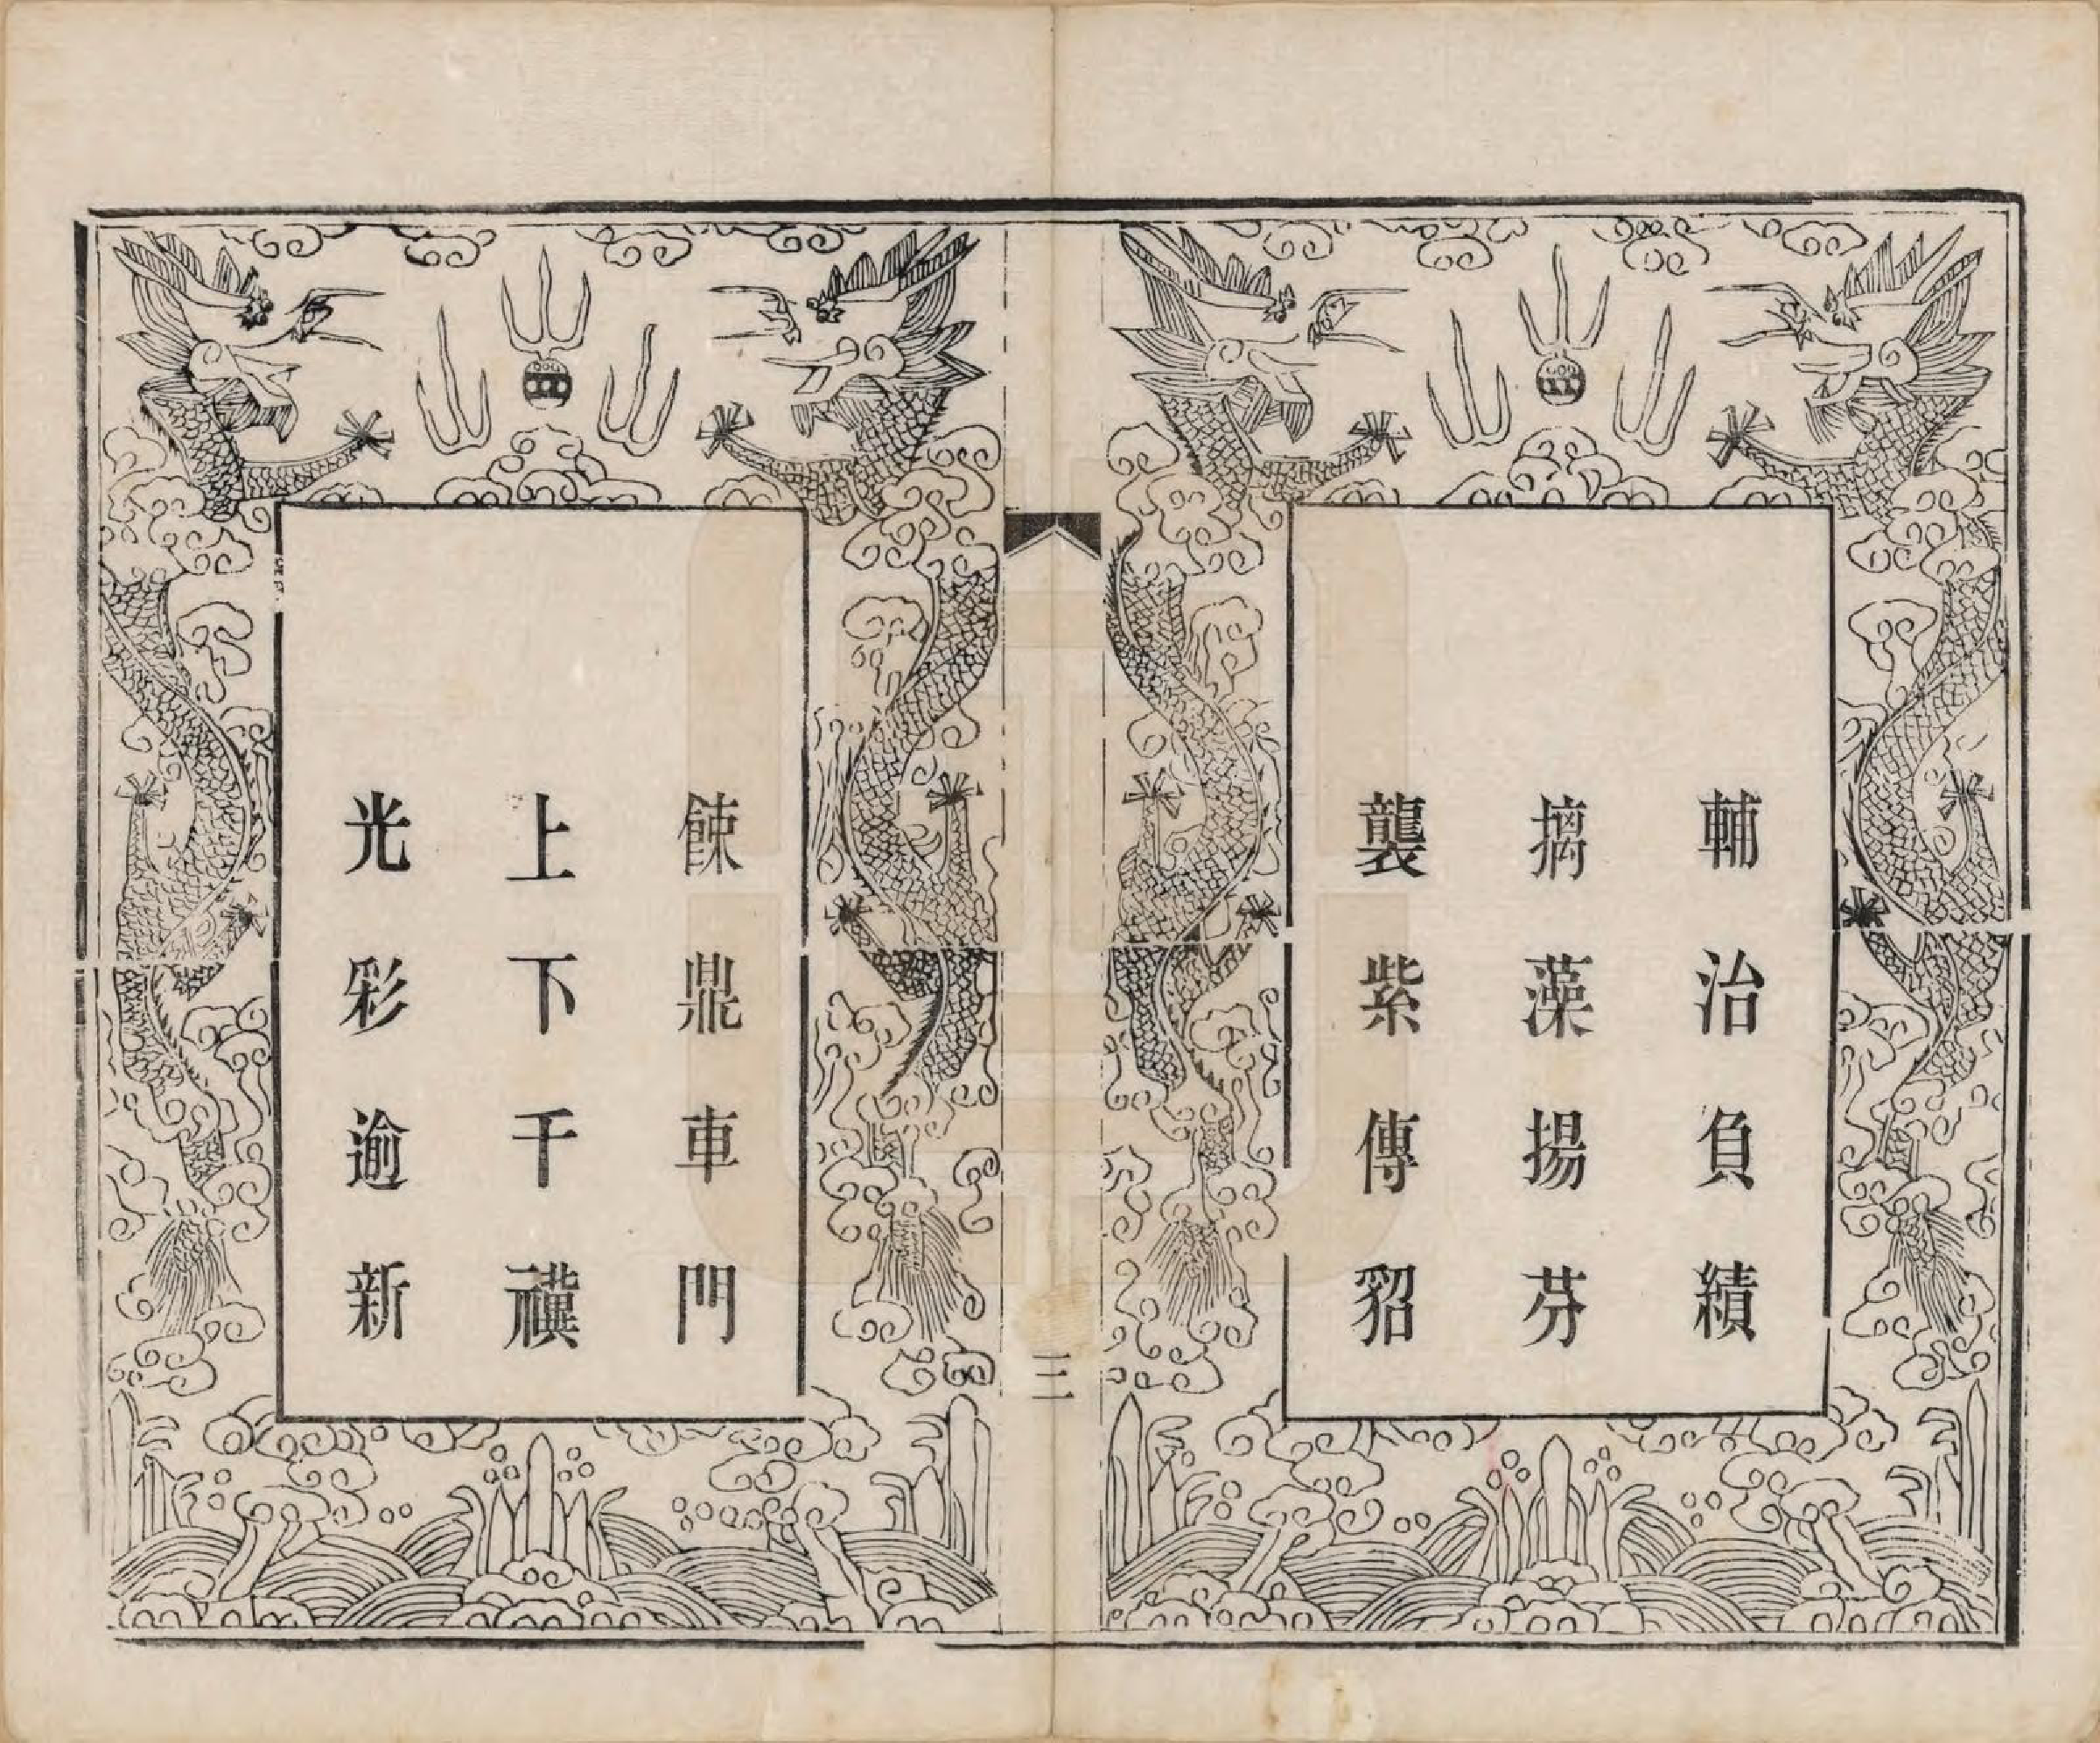 輔治負績
摛藻揚芬
襲紫傳貂
三
餗鼎車門
上下千禩
光彩逾新